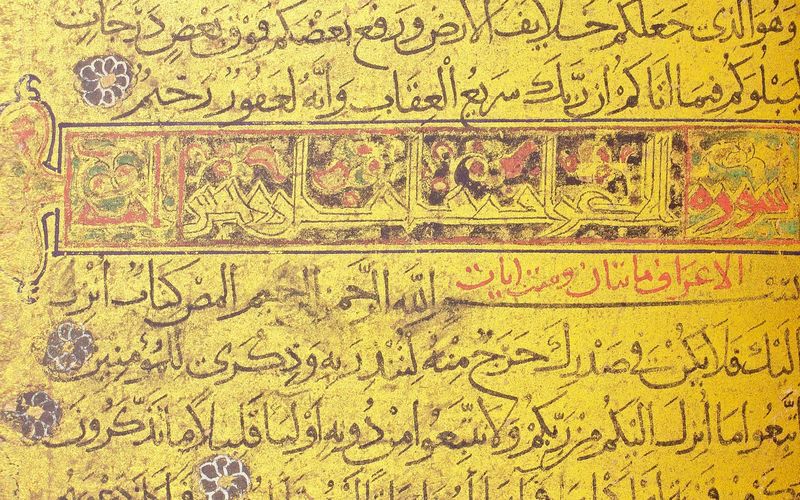 وَهُوَ الَّذِي جَعَلَكُمْ خَلَايِفَ الْأَرْضِ وَرَفَعَ بَعْضَكُمْ فَوْقَ بَعْضٍ دَرَجَاتٍ
لِيَبْلُوَكُمْ فِيمَا اتَاكُمْ اِنَّ رَبَّكَ سَرِيعُ الْعِقَابِ وَاِنَّهُ لَغَفُورٌ رَحِيمٌ
سورة الاعراف مائتان وست
الاعراف مائتان وست ايات
بسم الله الرَّحمن الرحيم المص كِتَابٌ اُنْزِلَ
اِلَيْكَ فَلَا يَكُنْ فِي صَدْرِكَ حَرَجٌ مِنْهُ لِتُنْذِرَ بِهِ وَذِكْرَى لِلْمُؤْمِنِينَ
اتَّبِعُوا مَا اُنْزِلَ اِلَيْكُمْ مِنْ رَبِّكُمْ وَلَا تَتَّبِعُوا مِنْ دُونِهِ اَوْلِيَا قَلِيلًا مَا تَذَكَّرُونَ